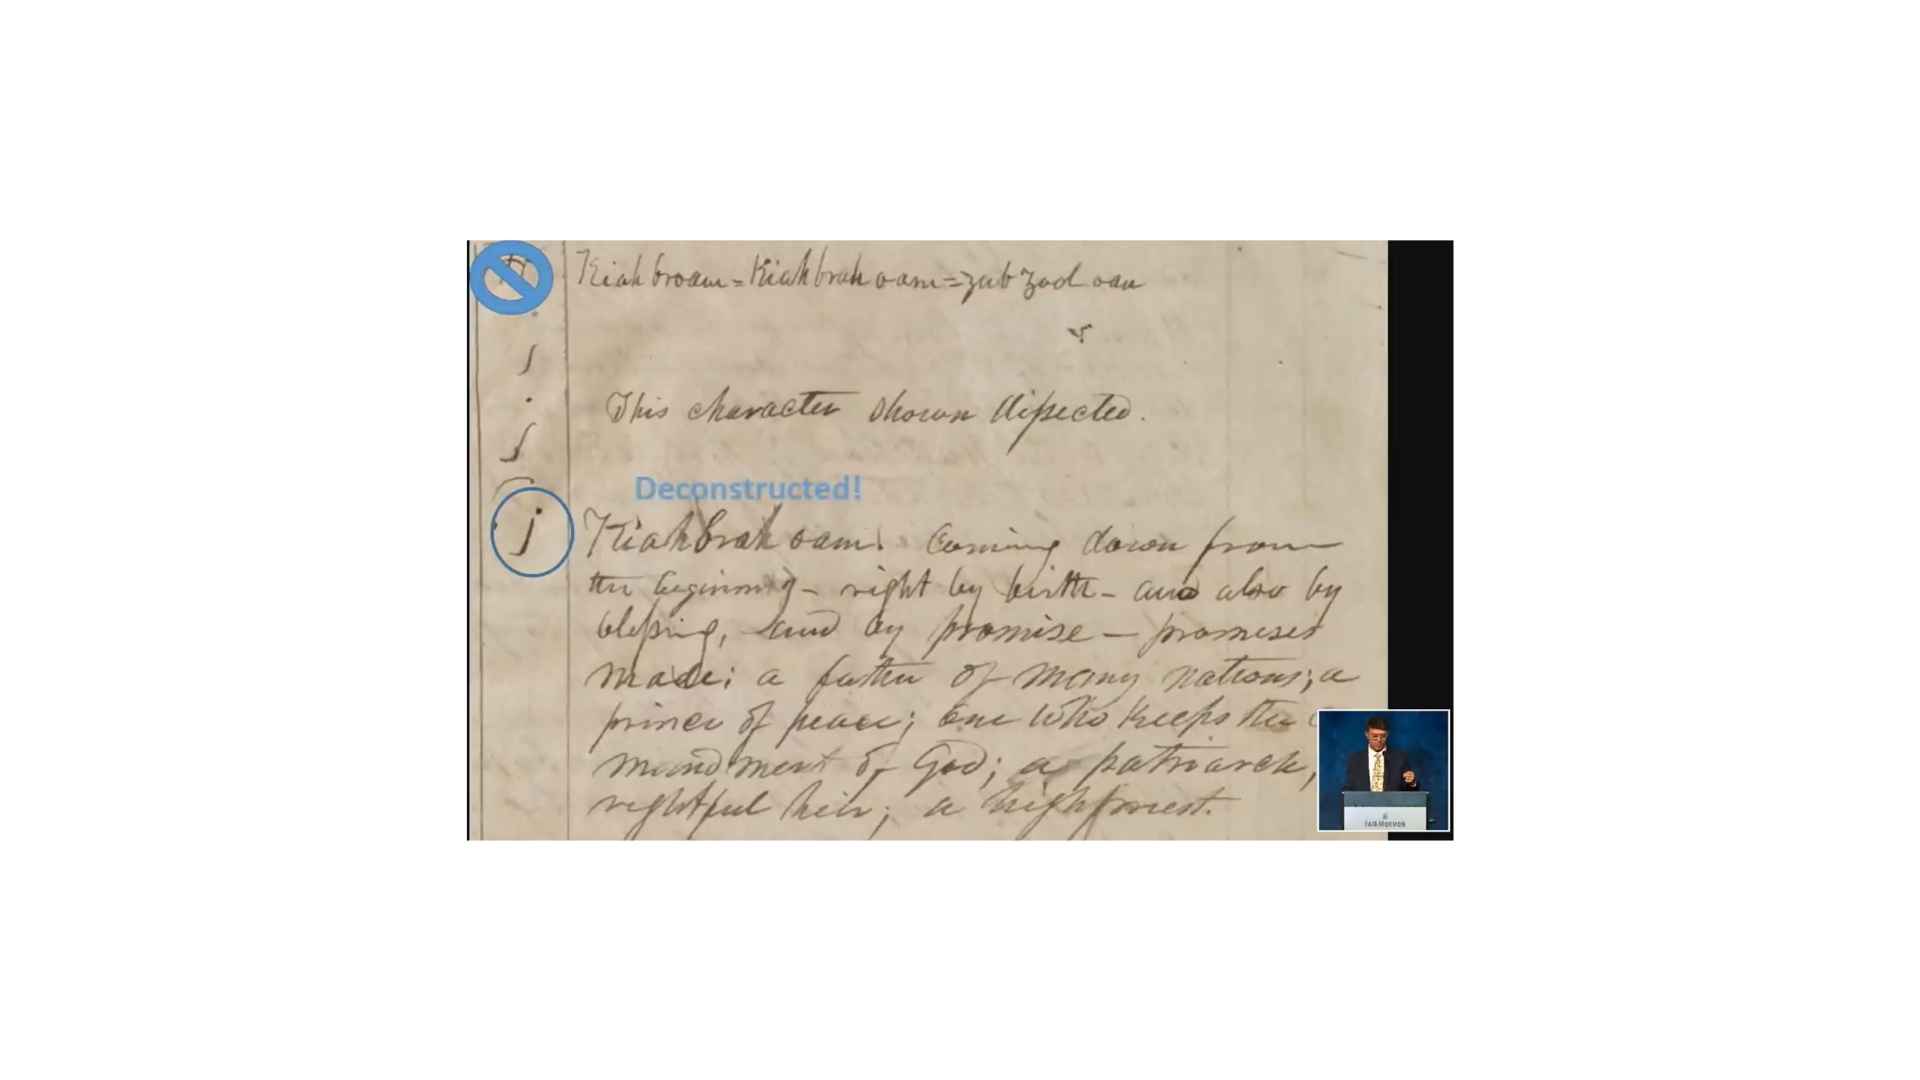 Kiah broam = Kiah brah oam = zub zool oan
This character shown dissected.
Deconstructed!
j Kiah brah oam. Coming down from
the beginning - right by birth - and also by
blessing, and by promise - promises
made; a father of many nations; a
prince of peace; one who keeps the
mandment of God; a patriarch,
rightful heir; a high priest.
FAIRMORMON